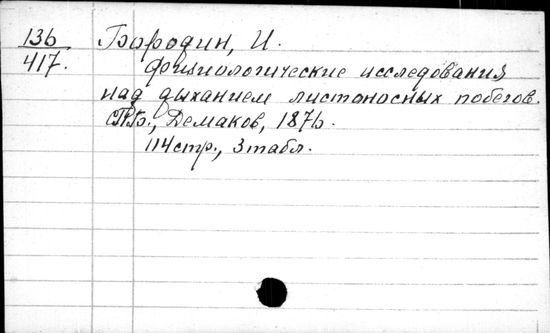 136
417.
Бородин, И.
Физиологические исследования
над дыханием листоносных побегов.
СПБ., Демаков, 1876.
114 стр., 3 табл.